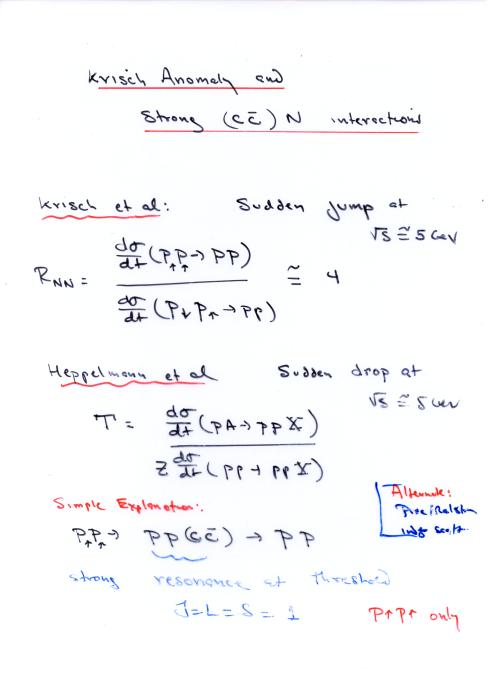 Krisch Anomaly and
Strong (c c̄) N interactions
Krisch et al: Sudden jump at
√s ≅ 5 GeV
R_NN = dσ/dt (p↑p↑ → pp) / dσ/dt (p↓p↑ → pp) ≅ 4
Heppelmann et al Sudden drop at
√s ≅ 5 GeV
T = dσ/dt (pA → pp X) / Z dσ/dt (pp → pp X)
Simple Explanation:
p↑p↑ → pp(c c̄) → pp
strong resonance at threshold
J=L=S=1
p↑p↑ only
Alternate:
Pire/Ralston